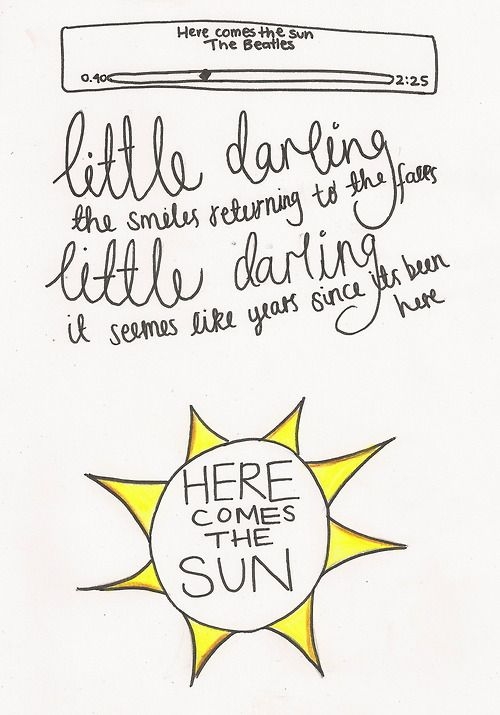 Here comes the sun
The Beatles
0.40 2:25
little darling
the smiles returning to the faces
little darling
it seemes like years since its been
here
HERE
COMES
THE
SUN